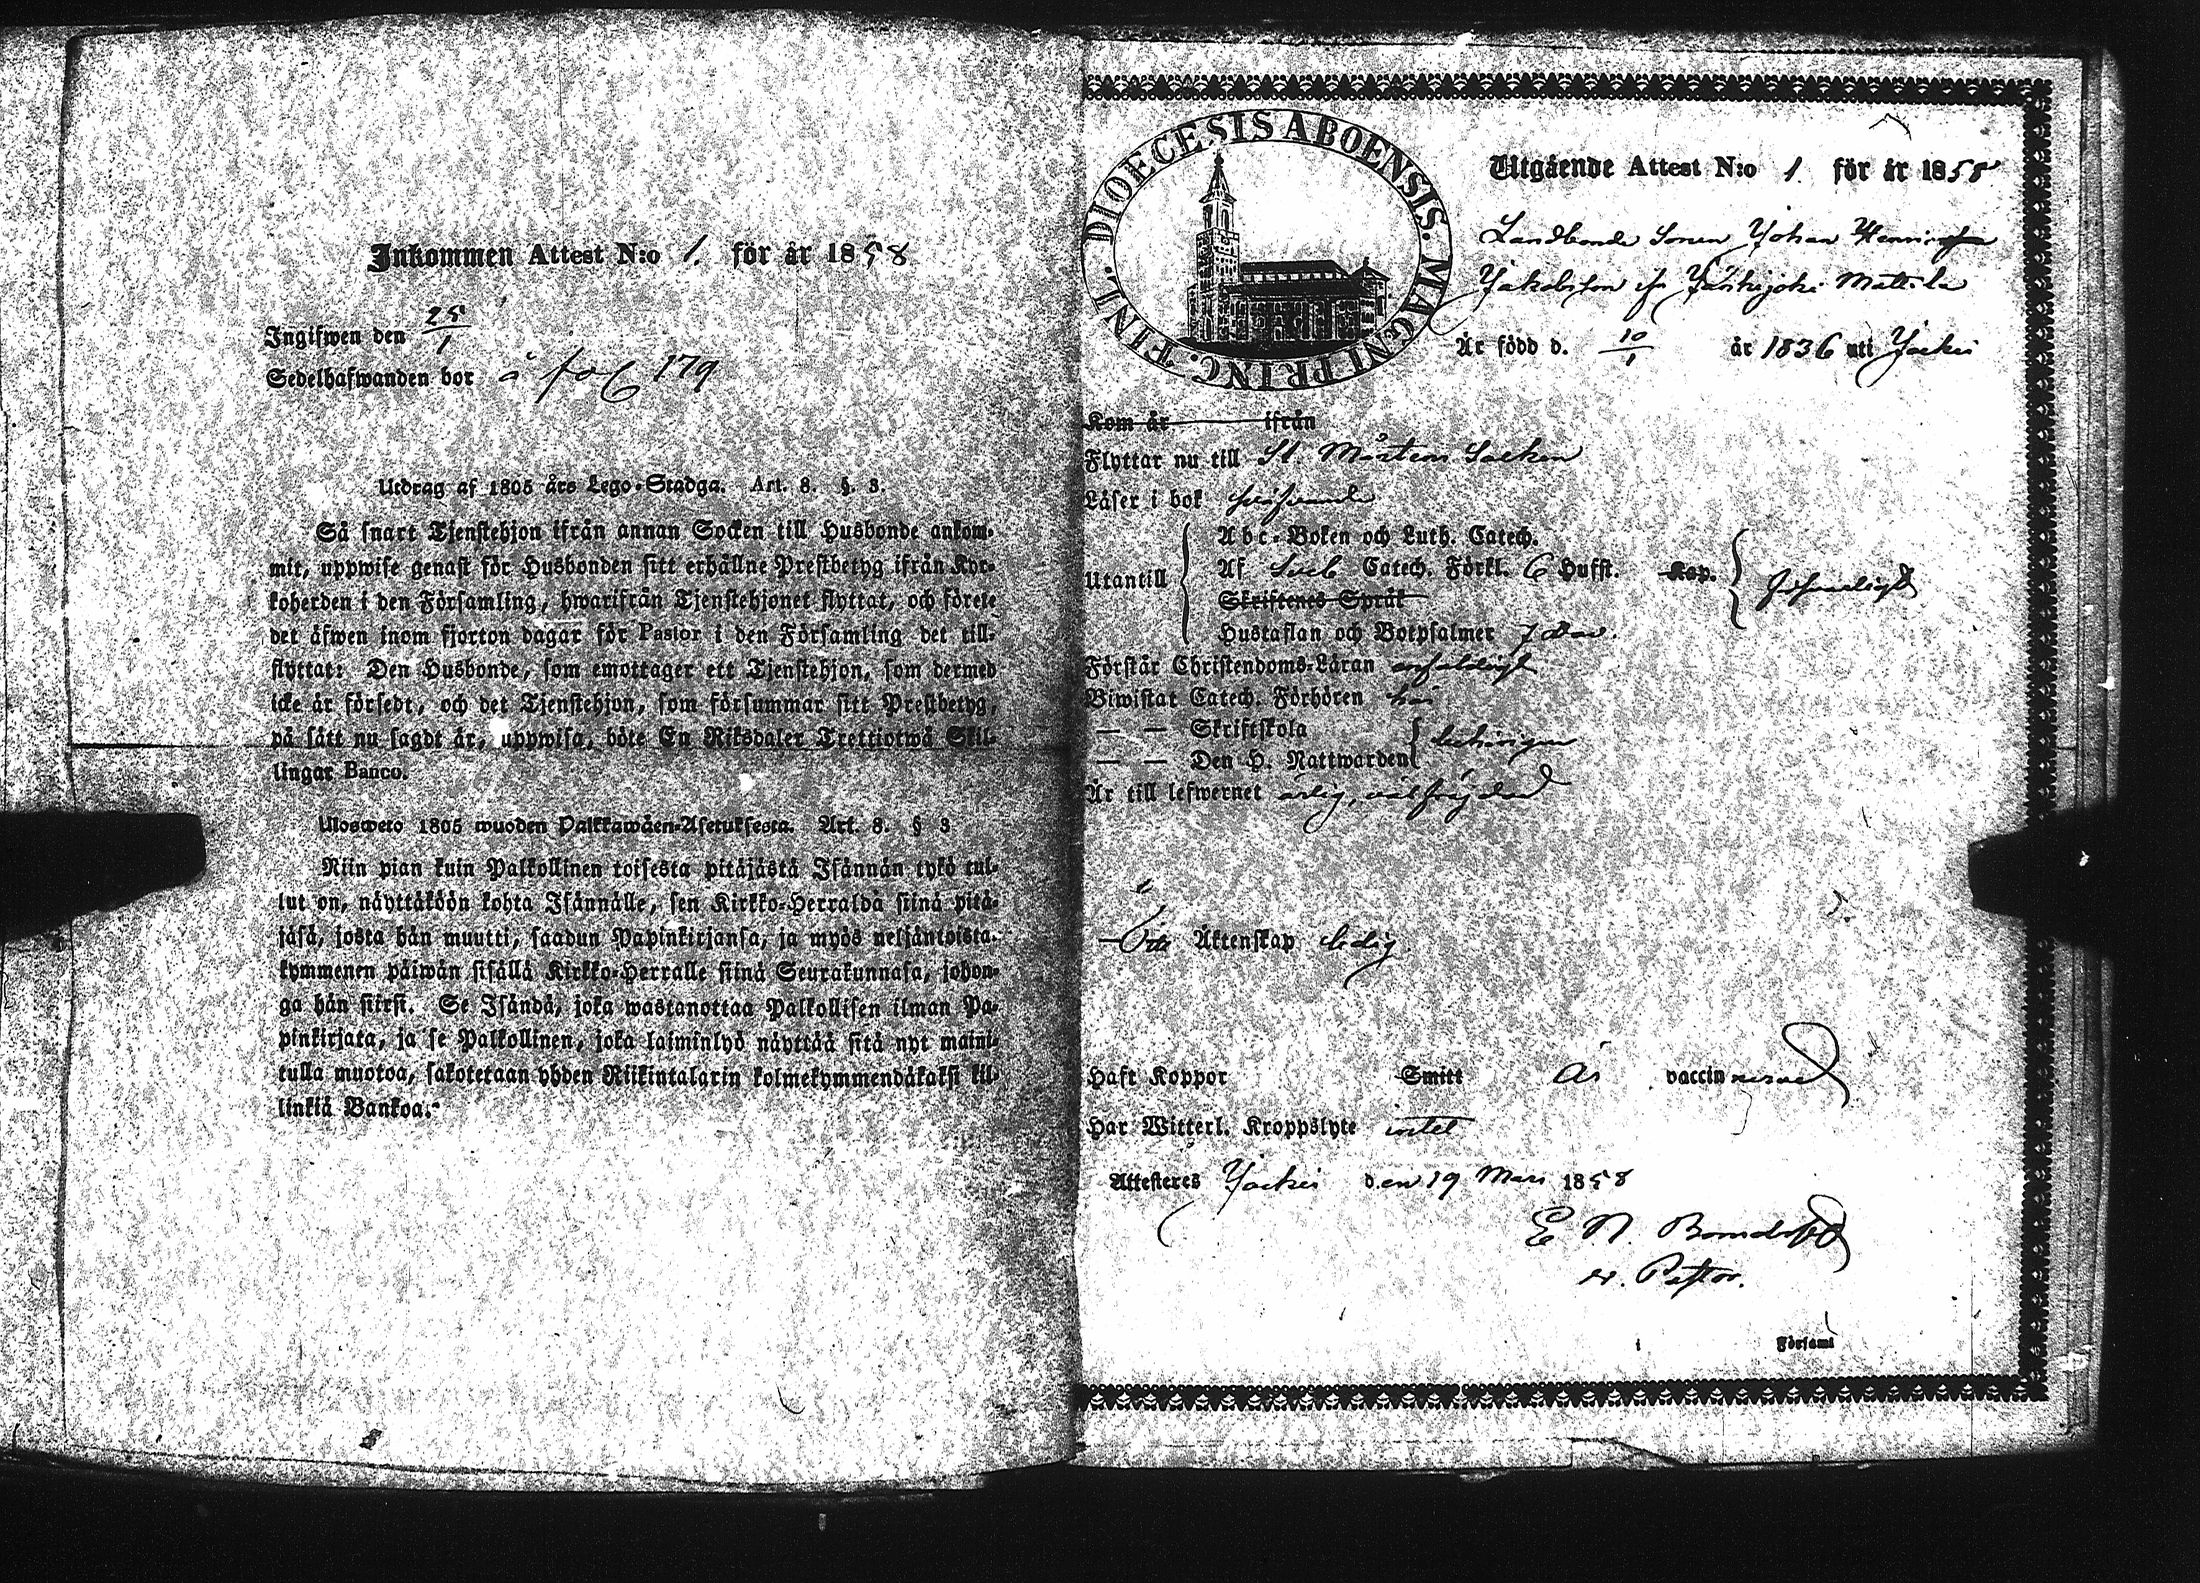 Inkommen Attest N:o 1. för år 1858
Ingifwen den 25/1
Sedelhafwanden bor å fol 179
Utdrag af 1805 års Lego-Stadga. Art. 8. §. 3.
Så snart Tjenstehjon ifrån annan Socken till Husbonde ankom-
mit, uppwise genast för Husbonden sitt erhållne Prestbetyg ifrån Kyr-
koherden i den Församling, hwarifrån Tjenstehjonet flyttat, och förete
det äfwen inom fjorton dagar för Pastor i den Församling det till-
flyttat: Den Husbonde, som emottager ett Tjenstehjon, som dermed
icke är försedt, och det Tjenstehjon, som försummar sitt Prestbetyg,
på sätt nu sagdt är, uppwisa, böte En Riksdaler Trettiotwå Skil-
lingar Banco.
Ulosweto 1805 wuoden Palkkawäen-Asetuksesta. Art. 8. § 3
Niin pian kuin Palkollinen toisesta pitäjästä Isännän tykö tul-
lut on, näyttäköön kohta Isännälle, sen Kirkko-Herralda siinä pitä-
jäsä, josta hän muutti, saadun Papinkirjansa, ja myös neljäntoista-
kymmenen päiwän sisällä Kirkko-Herralle siinä Seurakunnasa, johon-
ga hän siirsi. Se Isändä, joka wastanottaa Palkollisen ilman Pa-
pinkirjata, ja se Palkollinen, joka laiminlyö näyttää sitä nyt maini-
tulla muotoa, sakotetaan yhden Riikintalarin kolmekymmendäkaksi kil-
linkiä Bankoa.
DIOECESIS ABOENSIS. MAGNI PRINC. FINL.
Utgående Attest N:o 1. för år 1858
Landbonde Sonen Johan Henric
Jakobsson Mattila
Är född d. 10/1 år 1836 uti Jockis
Kom år ifrån
Flyttar nu till St. Mårtens Socken
Läser i bok
Utantill
Abc-Boken och Luth. Catech.
Af Sveb Catech. Förkl. 6 Hufst. Kap.
Skriftenes Språk
Hustaflan och Botpsalmer 7 Dav.
Förstår Christendoms-Läran enfaldigt
Biwistat Catech. Förhören
— — Skriftskola
— — Den H. Nattwarden behörigen
Är till lefwernet ärlig, välfrejdad
Äktenskap ledig.
Haft Koppor Smitt Är vaccinnerad
Har Witterl. Kroppslyte intet
Attesteres Jockis den 19 Mars 1858
E N. Bonsdorff
v. Pastor.
i Församl